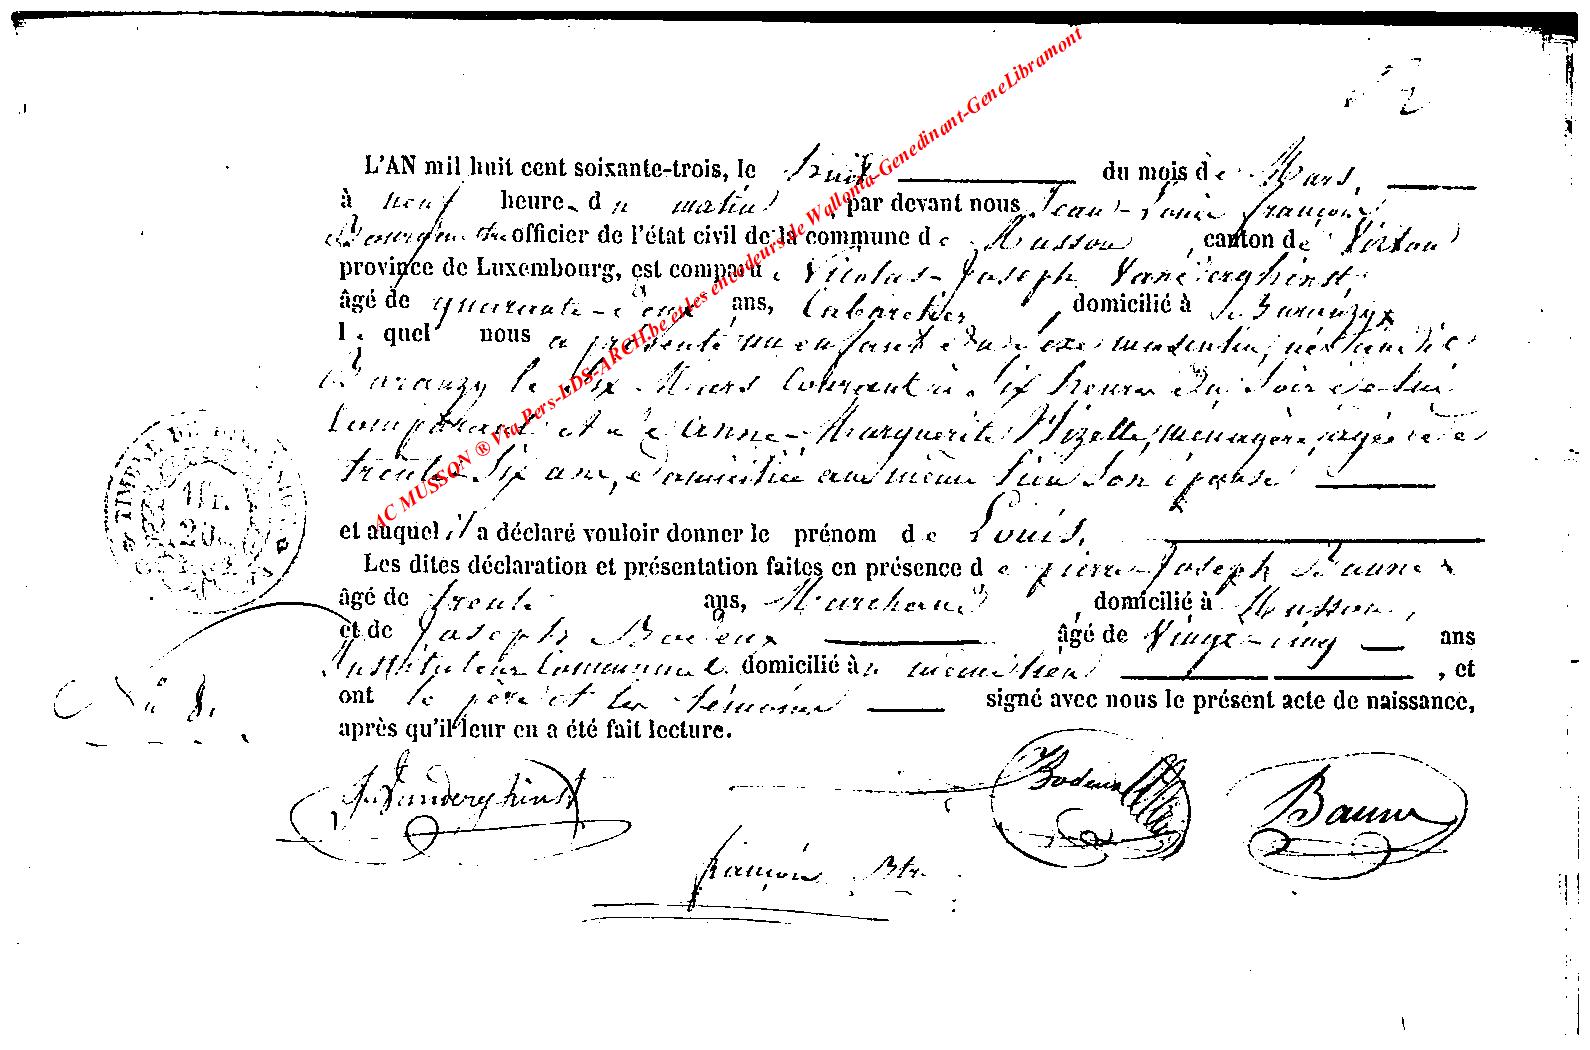 L'AN mil huit cent soixante-trois, le huit du mois de Mars,
à neuf heures du matin, par devant nous Jean-Louis françois,
Bourgmestre officier de l'état civil de la commune de Musson, canton de Virton
province de Luxembourg, est comparu Nicolas-Joseph Vanderghinst,
âgé de quarante-deux ans, Cabaretier, domicilié à Baranzy
lequel nous a présenté un enfant du sexe masculin, né
Baranzy le six Mars Courant à Six heures du Soir de lui
Comparant et de Anne-Marguerite Mizelle, ménagère, agée de
trente-Six ans, domiciliée au même lieu Son épouse
et auquel il a déclaré vouloir donner le prénom de Louis,
Les dites déclaration et présentation faites en présence de pierre-Joseph Baune
âgé de trente ans, Marchand, domicilié à Musson,
et de Joseph Bodeux âgé de Vingt-cinq ans
Instituteur Communal domicilié au même lieu, et
ont le père et les témoins signé avec nous le présent acte de naissance,
après qu'il leur en a été fait lecture.
N° 8.
TIMBRE DE
1 fr.
20
J. Vanderghinst
Bodeux
Baune
françois Btr.
AC MUSSON ® Via Pers-LDS-ARCH.be et les encodeurs de Wallonia-Genedinant-GeneLibramont